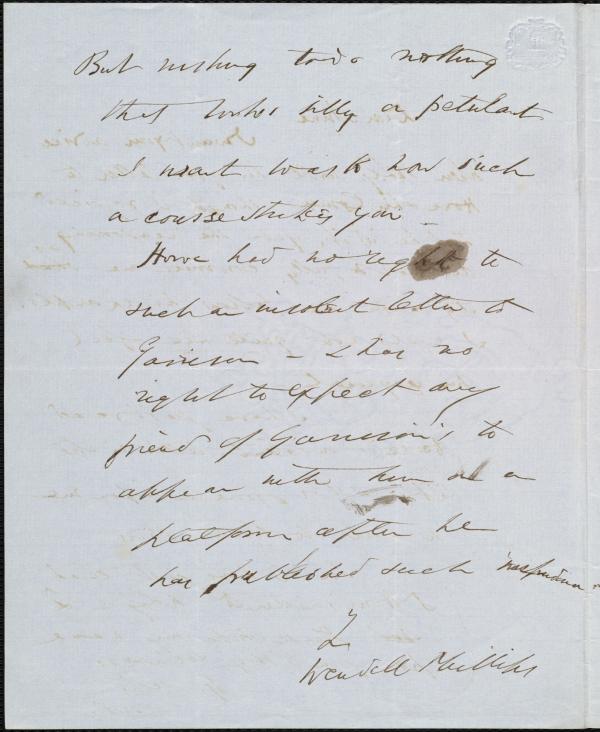 But wishing to do nothing
that looks silly or petulant
I want to ask how such
a course strikes you –
Howe had no right to
such an insolent letter to
Garrison – & has no
right to expect any
friend of Garrison's to
appear with him on a
platform after he
has published such
Y
Wendell Phillips